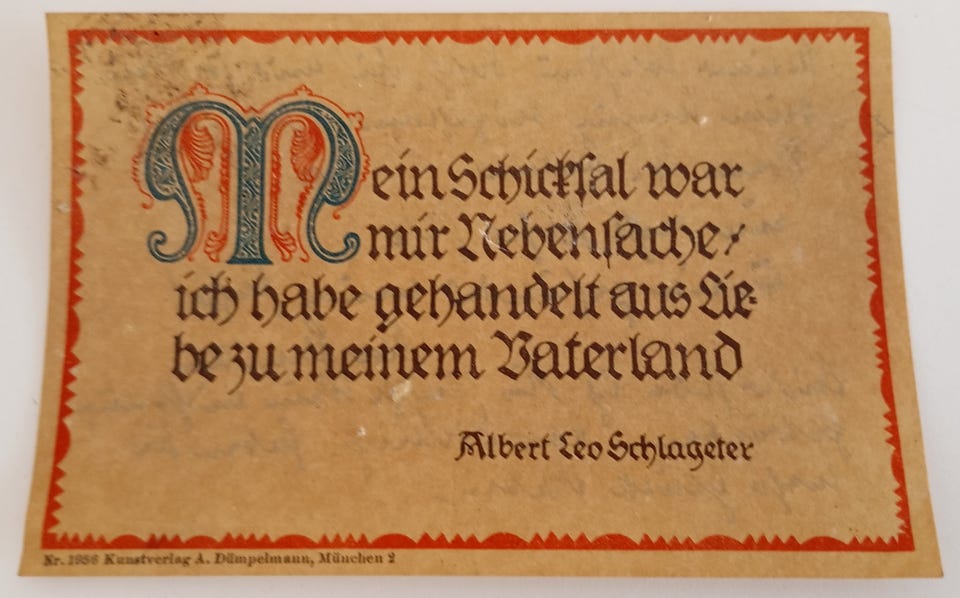 Mein Schickſal war
mir Nebenſache /
ich habe gehandelt aus Lie=
be zu meinem Vaterland
Albert Leo Schlageter
Nr. 1956 Kunstverlag A. Dümpelmann, München 2